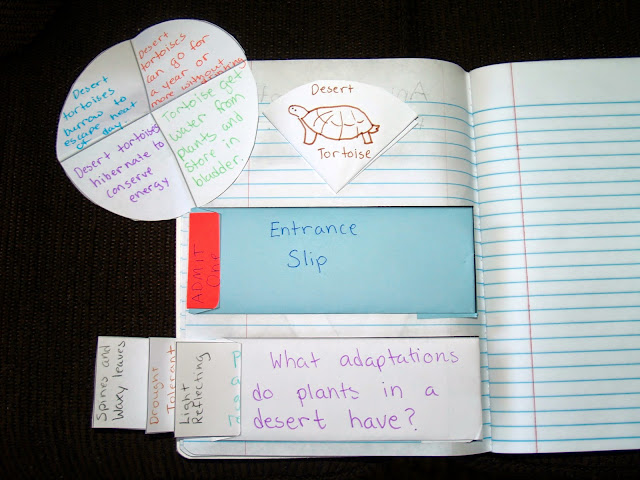 Desert
tortoises
can go for
a year or
more without
drinking
Desert
tortoises
burrow to
escape heat
of day.
Tortoise get
water from
plants and
store in
bladder.
Desert tortoises
hibernate to
conserve
energy
Desert
Tortoise
ADMIT
One
Entrance
Slip
Spines and
Waxy leaves
Drought
Tolerant
Light
Reflecting
What adaptations
do plants in a
desert have?